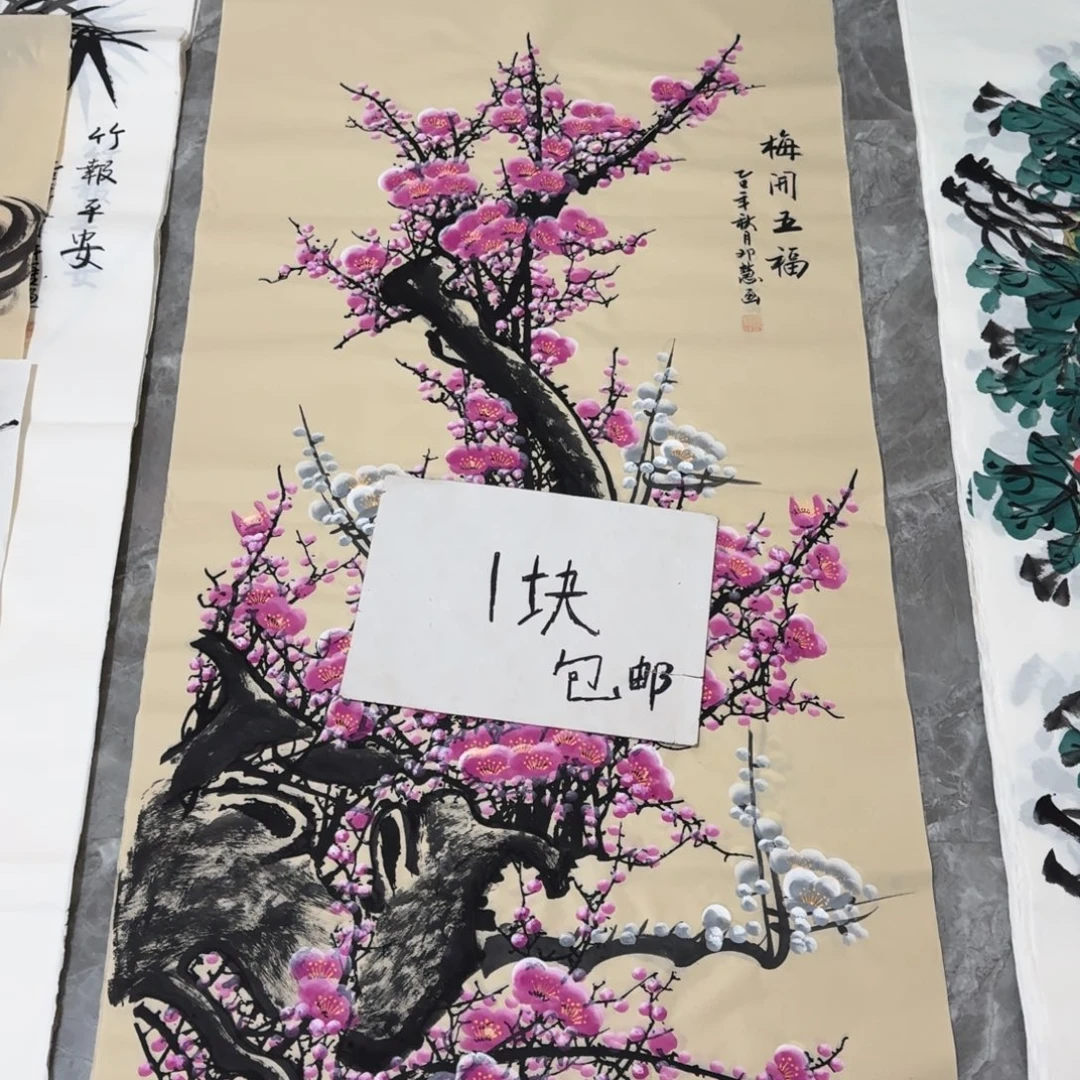 竹報平安
梅開五福
乙巳年秋月邓慧画
1块
包邮